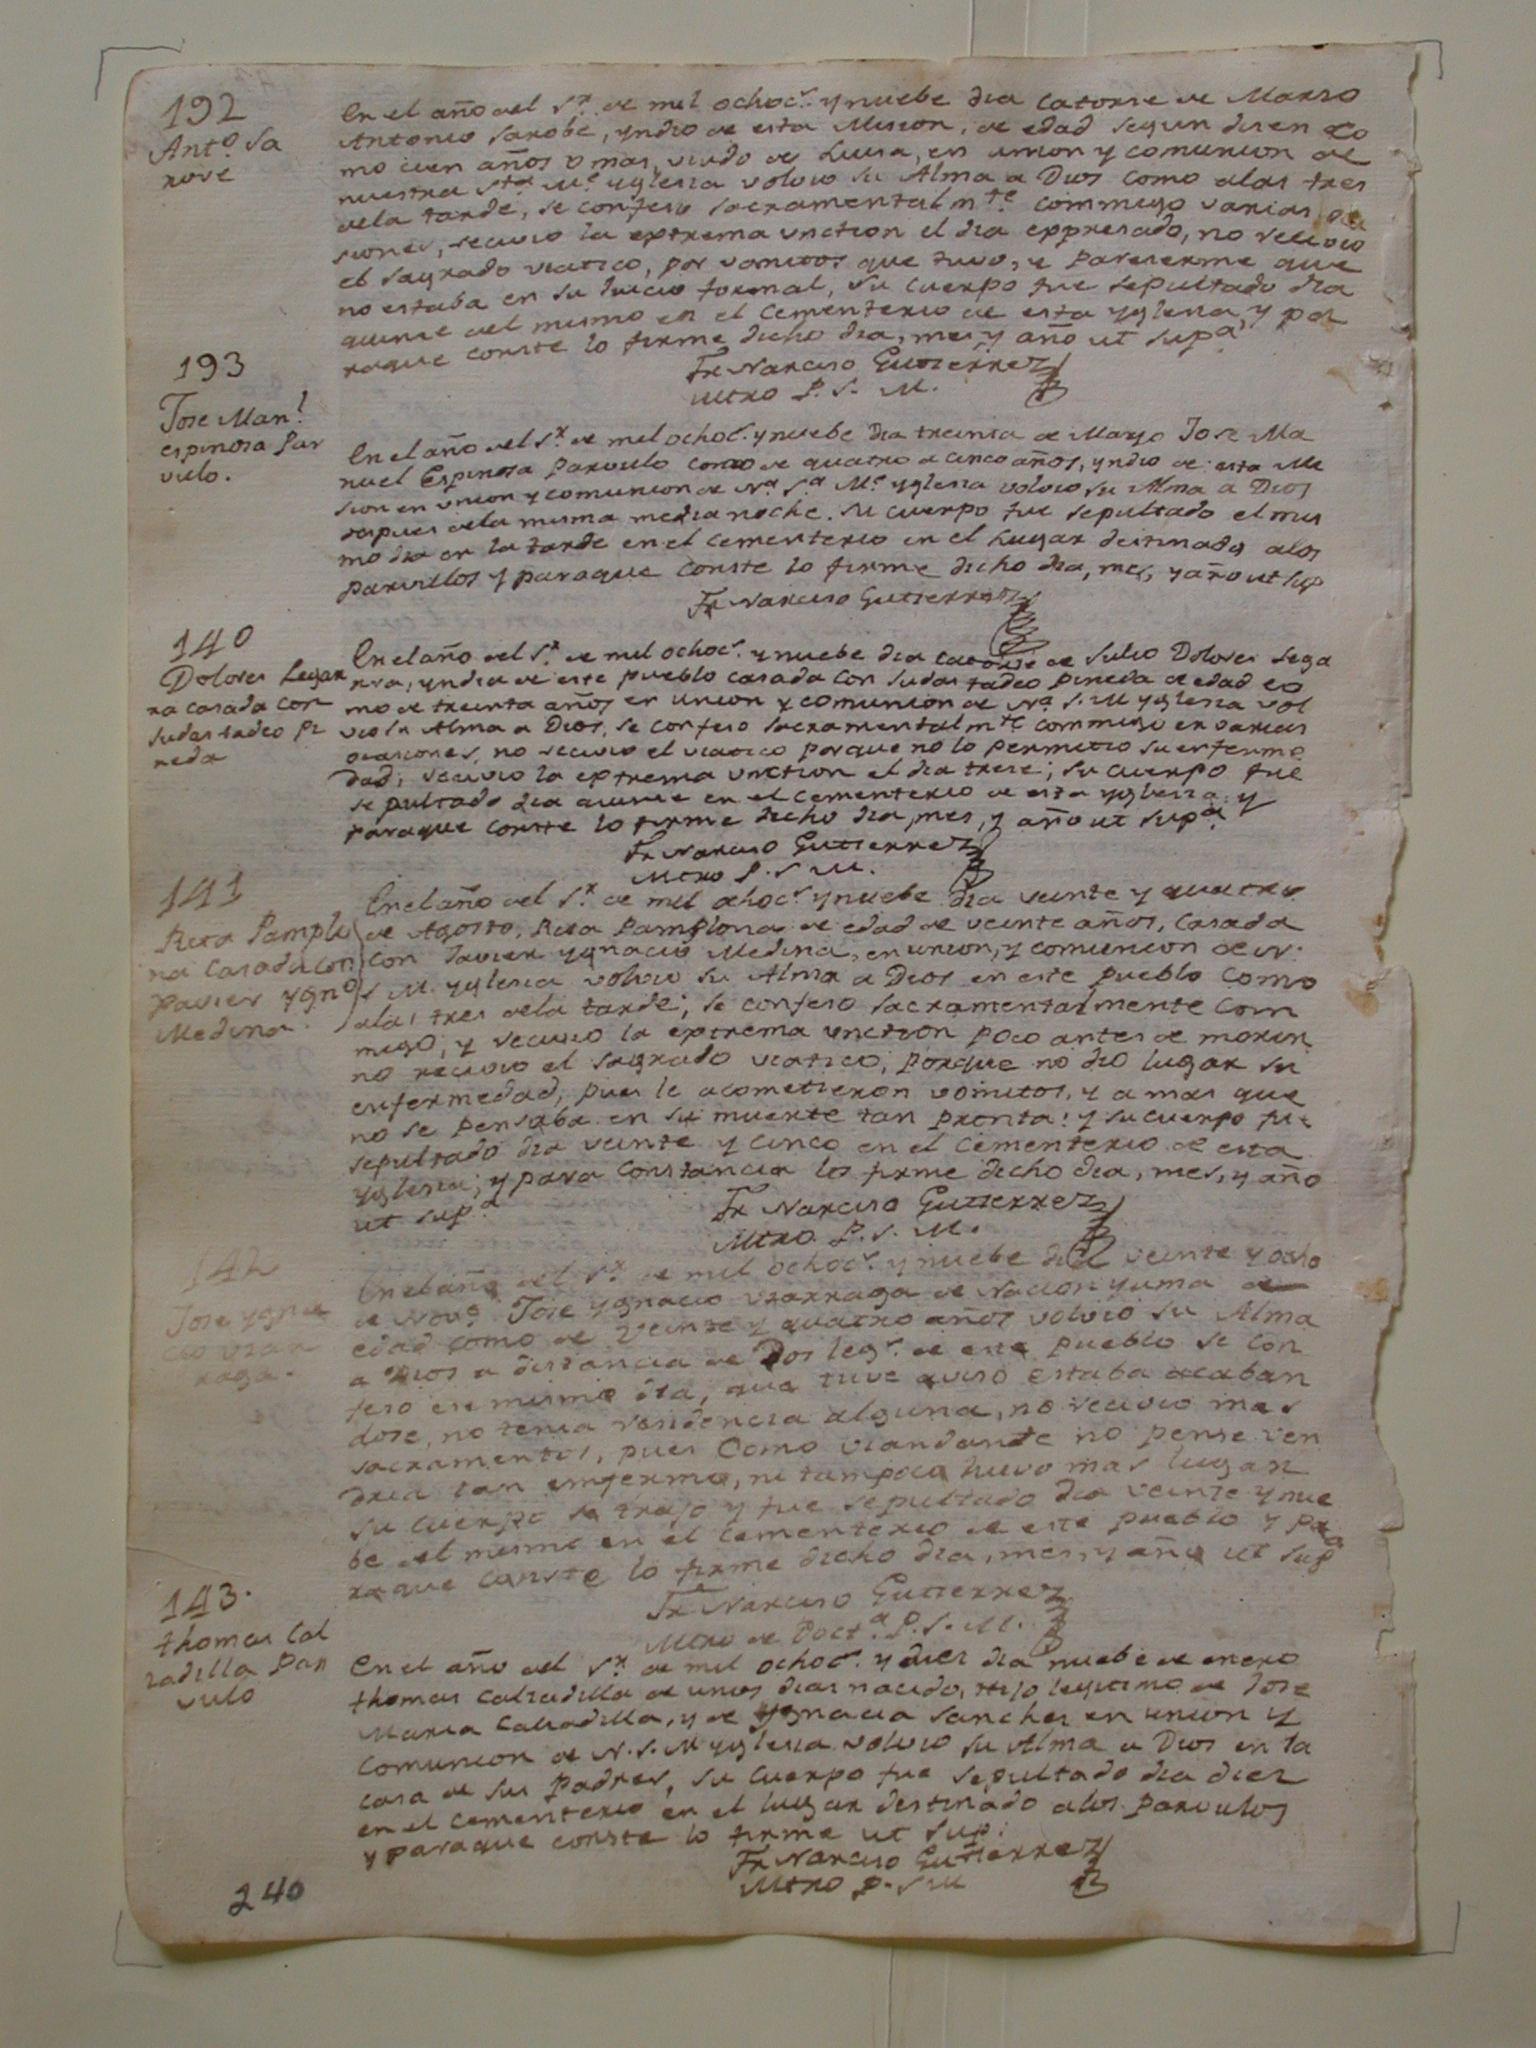 192
Antº. Sa
rove
En el año del Sr. de mil ochocs. y nuebe dia catorse de Marso
Antonio Sarobe, yndio de esta Mision, de edad segun disen co
mo cien años o mas, viudo de Luisa, en union y comunion de
nuestra Sta. Me. yglesia volvio su Alma a Dios como a las tres
dela tarde, se confeso sacramentalmte. commigo varias oca
siones, recivio la extrema vnction el dia eppresado, no recivio
el sagrado viatico, por vomitos que tuvo, y pareserme que
no estaba en su juicio formal, su cuerpo fue sepultado dia
quinse del mismo en el Cementerio de esta yglesia, y pa
raque conste lo firme dicho dia, mes y año ut supa.
Fr. Narciso Gutierrez
Mtro P. S. M.
193
Jose Manl.
espinosa Par
vulo.
En el año del Sr. de mil ochocs. y nuebe dia treinta de Mayo Jose Ma
nuel Espinosa parvulo como de quatro a cinco años, yndio de esta Mi
sion en vnion y comunion de Na. Sa. Me. yglesia volvio su Alma a Dios
despues dela misma media noche. su cuerpo fue sepultado el mis
mo dia en la tarde en el Cementerio en el Lugar destinado alos
parvulos y paraque conste lo firme dicho dia, mes, y año ut sup
Fr. Narciso Gutierrez
140
Dolores Legar
ra casada con
Judas tadeo Pi
neda
En el año del Sr. de mil ochocs. y nuebe dia catorse de Julio Dolores Lega
rra, yndia de este pueblo casada con Judas tadeo pineda de edad co
mo de treinta años en union y comunion de Na. S. M yglesia vol
vio su Alma a Dios, se confeso sacramentalmte. commigo en varias
ocasiones, no recivio el viatico porque no lo permitio su enferme
dad; recivio la eptrema vnction el dia trese; su cuerpo fue
sepultado dia quinse en el cementerio de esta yglesia: y
paraque conste lo firme dicho dia, mes, y año ut supa.
Fr. Narciso Gutierrez
Mtro P. S M.
141
Rita Pamplo
na casada con
Pavier ygnº
Medina.
En el año del Sr. de mil ochocs. y nuebe dia veinte y quatro
de Agosto, Rita Pamplona de edad de veinte años, casada
con Javier ygnacio Medina, en union, y comunion de N.
S M. yglesia volvio su Alma a Dios en este pueblo como
alas tres dela tarde; se confeso sacramentalmente com
migo, y recivio la eptrema vnction poco antes de morir,
no recivio el sagrado viatico, porque no dio lugar su
enfermedad, pues le acometieron vomitos, y a mas que
no se pensaba en su muerte tan pronta: y su cuerpo fue
sepultado dia veinte y cinco en el Cementerio de esta
yglesia; y para constancia lo firme dicho dia, mes, y año
ut supa.
Fr. Narciso Gutierrez
Mtro. P. S. M.
142
Jose ygna
cio vzar
raga.
En el año del Sr. de mil ochocs. y nuebe dia veinte y ocho
de Nove. Jose ygnacio vzarraga de Nacion yuma de
edad como de veinte y quatro años volvio su Alma
a Dios a distancia de Dos legs. de este pueblo se con
feso ese mismo dia, que tuve aviso estaba acaban
dose, no tenia residencia alguna, no recivio mas
sacramentos, pues Como viandante no pense ven
dria tan emfermo, ni tampoco huvo mas lugar
su cuerpo se trajo y fue sepultado dia veinte y nue
be del mismo en el cementerio de este pueblo y pa
raque conste lo firme dicho dia, mes, y año ut supa
Fr. Narciso Gutierrez
Mtro de Docta. P. S. M.
143.
thomas Cal
zadilla Par
vulo
En el año del Sr. de mil ochocs. y dies dia nuebe de enero
thomas Calsadilla de unos dias nacido, Hijo legitimo de Jose
Maria Calsadilla, y de ygnacia Sanches en union y
Comunion de N. S. M yglesia volvio su Alma a Dios en la
casa de sus Padres, su cuerpo fue sepultado dia diez
en el cementerio en el lugar destinado alos parvulos
y paraque conste lo firme ut sup.
Fr. Narciso Gutierrez
Mtro P. S M
240